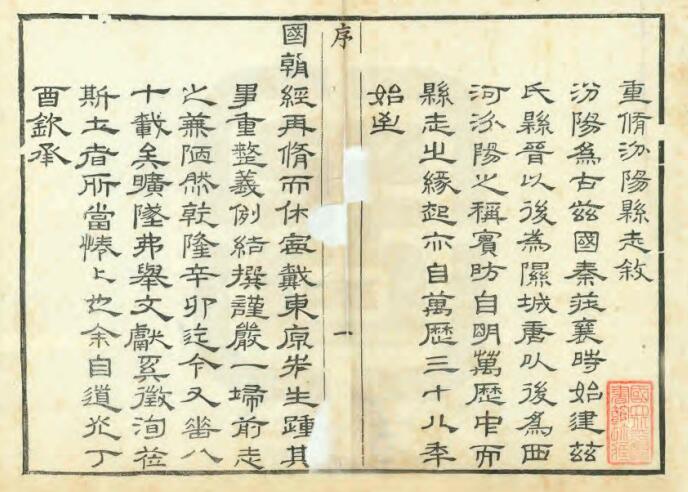 重脩汾陽縣志敘
汾陽為古茲國秦莊襄時始建茲
氏縣晉以後為隰城唐以後為西
河汾陽之稱實昉自明萬歷中而
縣志之緣起亦自萬歷三十八年
始至
序
一
國朝經再脩而休寧戴東原先生踵其
事重整義例結撰謹嚴一埽前志
之蕪陋然乾隆辛卯迄今又垂八
十載矣曠墜弗舉文獻奚徵洵莅
斯土者所當惓〻也余自道光丁
酉欽承